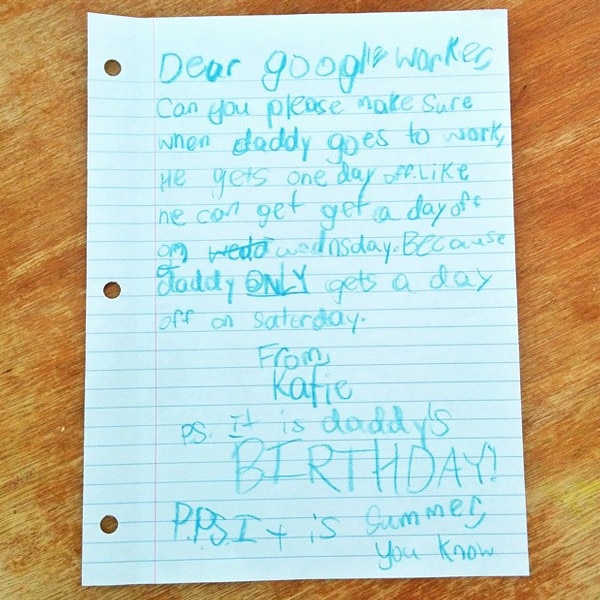 Dear google worker,
Can you please make sure
when daddy goes to work,
He gets one day off. Like
he can get get a day off
on wedd wednsday. Because
daddy ONLY gets a day
off on saturday.
From,
Katie
PS. It is daddy's
BIRTHDAY!
P.P.S. It is summer,
you know